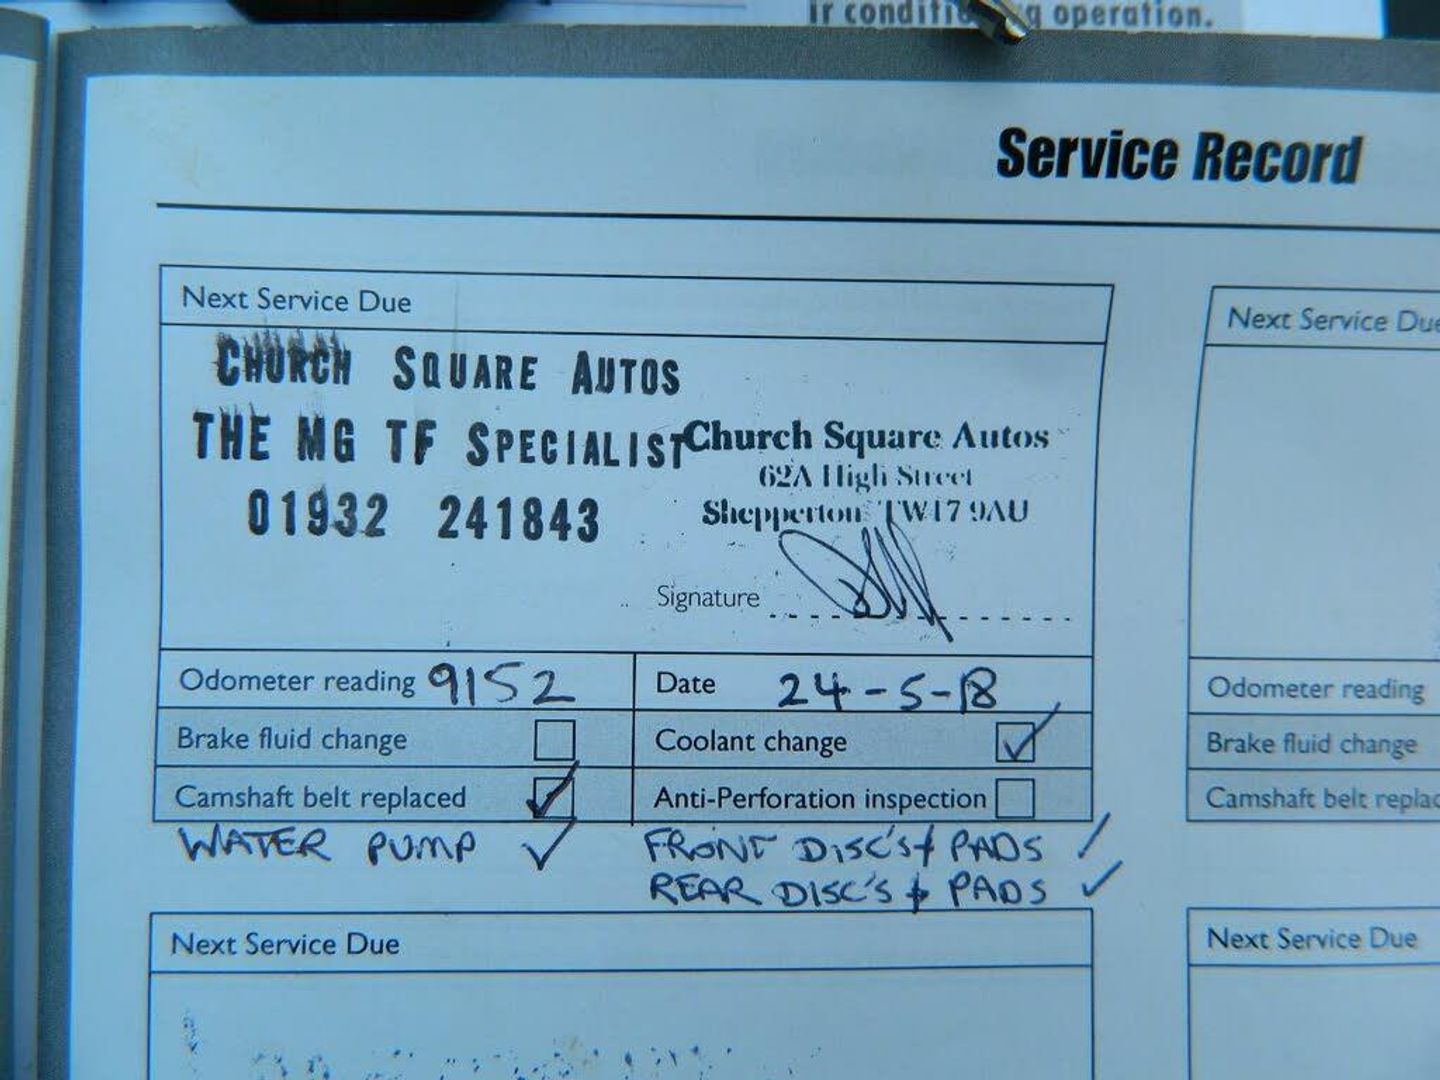 operation.
Service Record
Next Service Due
CHURCH SQUARE AUTOS
THE MG TF SPECIALIST
01932 241843
Church Square Autos
62A High Street
Shepperton TW17 9AU
Signature
Odometer reading 9152
Date 24-5-18
Brake fluid change
Coolant change ✓
Camshaft belt replaced ✓
Anti-Perforation inspection
WATER PUMP ✓
FRONT DISC'S + PADS /
REAR DISC'S + PADS ✓
Next Service Due
Next Service Due
Odometer reading
Brake fluid change
Camshaft belt
Next Service Due